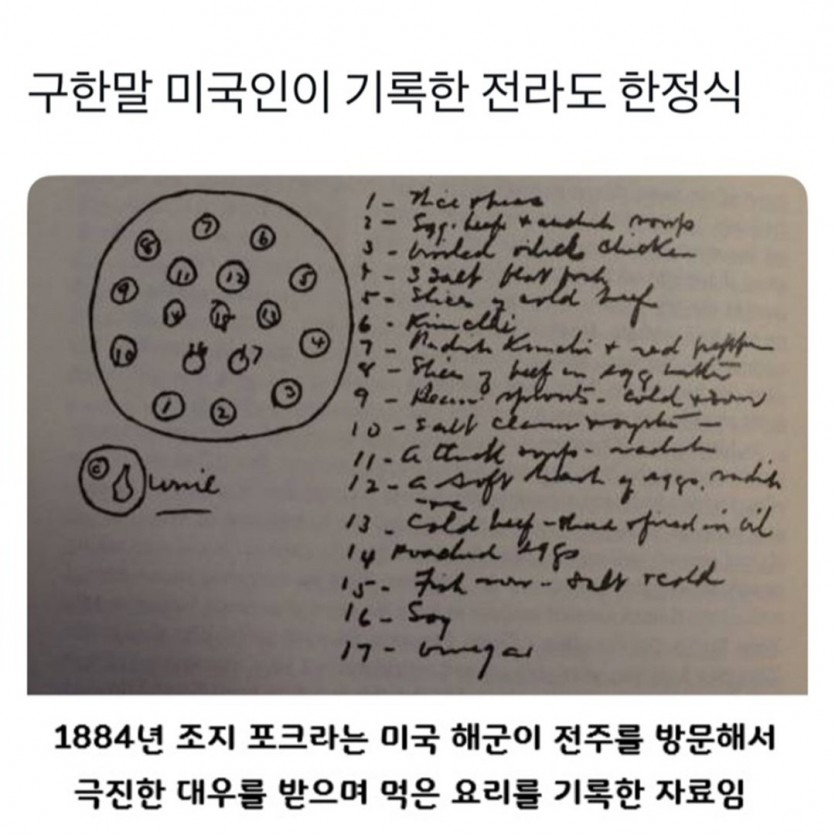 구한말 미국인이 기록한 전라도 한정식
7
8
6
11
12
5
9
14
15
13
4
10
16
17
3
1
2
wine
1 - Rice
2 - Egg, beef + radish soup
3 - broiled chicken
4 - 3 salt flat pork
5 - Slices of cold beef
6 - Kimchi
7 - Radish Kimchi + red pepper
8 - Slices of beef in egg batter
9 - Bean sprouts - cold + sour
10 - Salt clams + oysters -
11 - A thick soup - radish
12 - a soft hash of eggs, radish
13 - Cold beef - fried in oil
14 Poached eggs
15 - Fish - salt + cold
16 - Soy
17 - vinegar
1884년 조지 포크라는 미국 해군이 전주를 방문해서
극진한 대우를 받으며 먹은 요리를 기록한 자료임